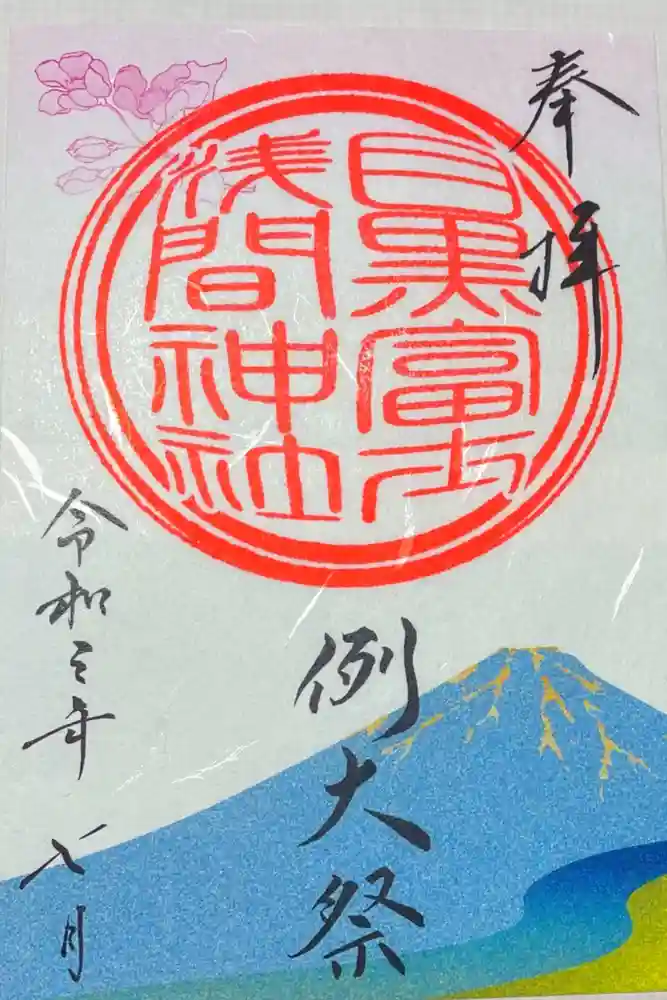 奉拝
目黒富士
浅間神社
例大祭
令和三年
七月